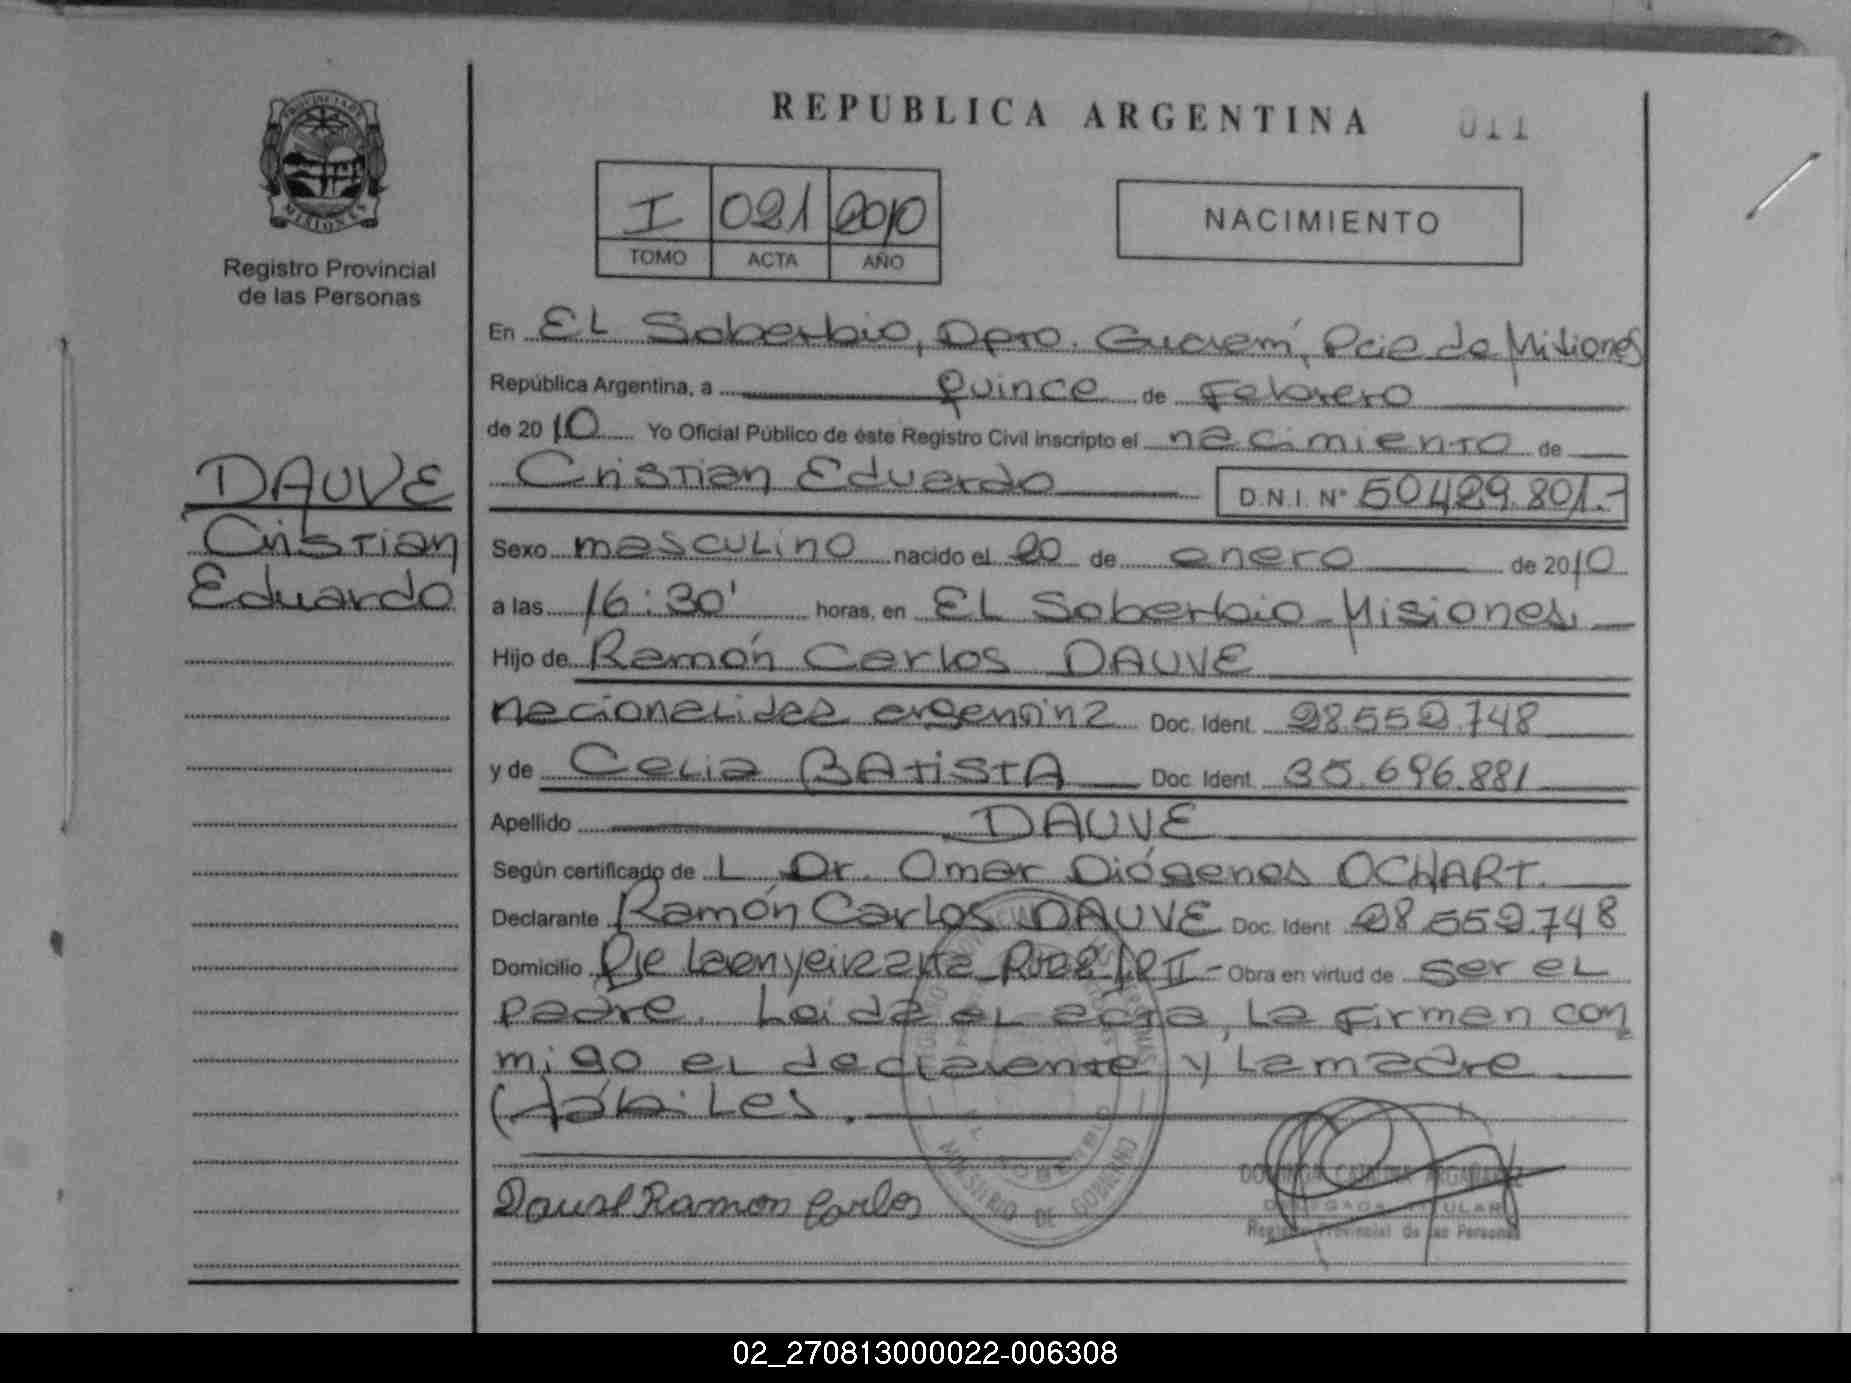 REPUBLICA ARGENTINA
011
PROVINCIA DE
MISIONES
Registro Provincial
de las Personas
I 021 2010
TOMO ACTA AÑO
NACIMIENTO
En EL Soberbio, Dpto. Guaraní, Pcia de Misiones
República Argentina, a quince de Febrero
de 2010 Yo Oficial Público de éste Registro Civil inscripto el nacimiento de
Cristian Eduardo D.N.I. N° 50.429.801.-
DAUVE
Cristian
Eduardo
Sexo masculino nacido el 20 de enero de 2010
a las 16:30' horas, en EL Soberbio - Misiones
Hijo de Ramón Carlos DAUVE
nacionalidad argentina Doc. Ident. 28.552.748
y de Celia BATISTA Doc. Ident. 35.696.881
Apellido DAUVE
Según certificado de L Dr. Omar Diógenes OCHART.
Declarante Ramón Carlos DAUVE Doc. Ident 28.552.748
Domicilio Pje - Obra en virtud de ser el
padre. Leida el acta, la firman con
migo el declarante y la madre
Hábiles.
Dauve Ramon Carlos
MINISTERIO DE GOBIERNO
TITULAR
Registro Provincial de las Personas
02_270813000022-006308